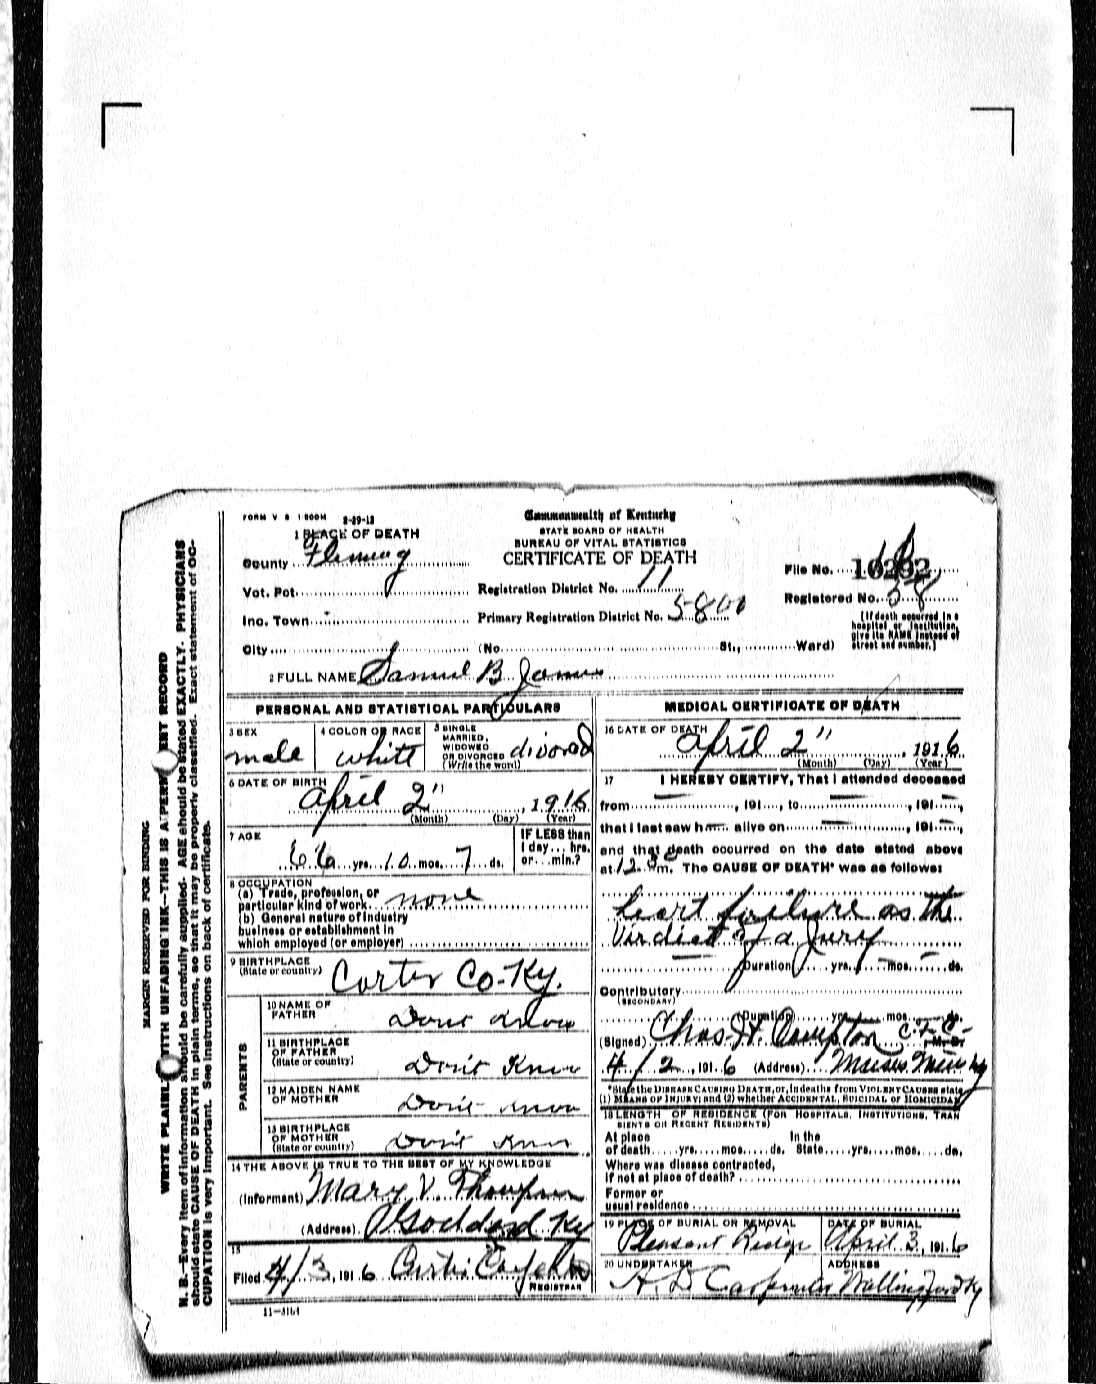 FORM V S 1-500M 2-29-12
Commonwealth of Kentucky
STATE BOARD OF HEALTH
BUREAU OF VITAL STATISTICS
CERTIFICATE OF DEATH
1 PLACE OF DEATH
County Fleming
Vot. Pot.
Inc. Town
City
Registration District No. 11
Primary Registration District No. 5800
(No. St., Ward)
File No. 10292
Registered No. 58
[If death occurred in a
hospital or institution,
give its NAME instead of
street and number.]
2 FULL NAME Samuel B James
PERSONAL AND STATISTICAL PARTICULARS
3 SEX
male
4 COLOR OR RACE
white
5 SINGLE
MARRIED,
WIDOWED
OR DIVORCED
(Write the word)
divorced
6 DATE OF BIRTH
April 2", 1916
(Month) (Day) (Year)
7 AGE
66 yrs. 10 mos. 7 ds.
IF LESS than
1 day... hrs.
or... min.?
8 OCCUPATION
(a) Trade, profession, or
particular kind of work none
(b) General nature of industry
business or establishment in
which employed (or employer)
9 BIRTHPLACE
(State or country)
Carter Co-Ky.
PARENTS
10 NAME OF
FATHER
Dont Know
11 BIRTHPLACE
OF FATHER
(State or country)
Don't Know
12 MAIDEN NAME
OF MOTHER
Dont Know
13 BIRTHPLACE
OF MOTHER
(State or country)
Don't Know
14 THE ABOVE IS TRUE TO THE BEST OF MY KNOWLEDGE
(Informant) Mary V. Thompson
(Address) Goddard Ky
15
Filed 4/3, 1916 Curtis
REGISTRAR
11-3161
MEDICAL CERTIFICATE OF DEATH
16 DATE OF DEATH
April 2", 1916
(Month) (Day) (Year)
17 I HEREBY CERTIFY, That I attended deceased
from , 191 , to , 191 ,
that I last saw h alive on , 191 ,
and that death occurred on the date stated above
at 12 30 m. The CAUSE OF DEATH* was as follows:
heart failure as the
Virdict of a Jury
Duration yrs. mos. ds.
Contributory
(SECONDARY)
Duration yrs. mos. ds.
(Signed) Chas. H. Compton C F C M. D.
4/2, 1916 (Address)
*State the DISEASE CAUSING DEATH, or, in deaths from VIOLENT CAUSES state
(1) MEANS OF INJURY; and (2) whether ACCIDENTAL, SUICIDAL or HOMICIDAL
18 LENGTH OF RESIDENCE (FOR HOSPITALS, INSTITUTIONS, TRAN
SIENTS OR RECENT RESIDENTS)
At place In the
of death yrs. mos. ds. State yrs. mos. ds.
Where was disease contracted,
if not at place of death?
Former or
usual residence
19 PLACE OF BURIAL OR REMOVAL
Pleasant Ridge
DATE OF BURIAL
April 3, 1916
20 UNDERTAKER
A. D Carpenter
ADDRESS
Wallingford Ky
MARGIN RESERVED FOR BINDING
WRITE PLAINLY WITH UNFADING INK—THIS IS A PERMANENT RECORD
N. B.—Every item of information should be carefully supplied. AGE should be stated EXACTLY. PHYSICIANS
should state CAUSE OF DEATH in plain terms, so that it may be properly classified. Exact statement of OC-
CUPATION is very important. See instructions on back of certificate.